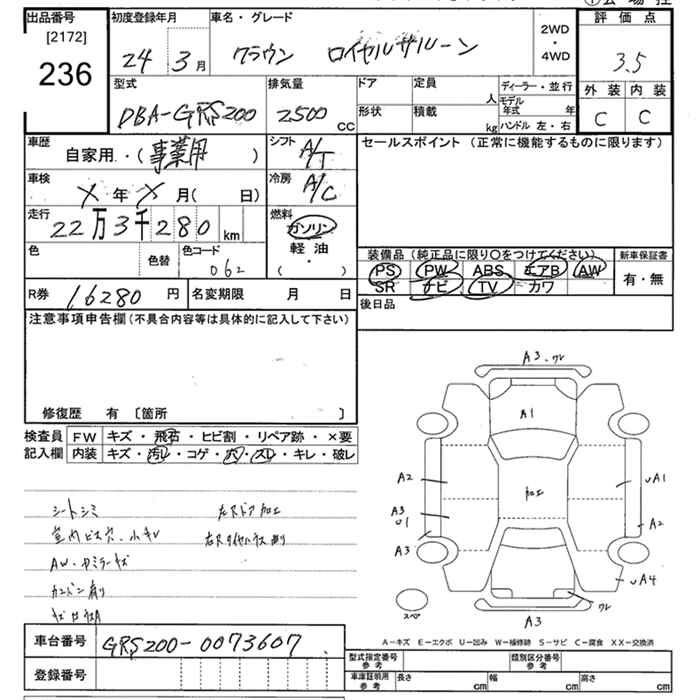 出品番号
[2172]
236
初度登録年月
24年 3月
車名・グレード
クラウン ロイヤルサルーン
2WD
・
4WD
評価点
3.5
外装 内装
C C
型式
DBA-GRS200
排気量
2500 CC
ドア
定員
人
形状
積載
kg
ディーラー・並行
モデル年式 年
ハンドル 左・右
車歴
自家用・(事業用)
シフト
A/T
セールスポイント (正常に機能するものに限ります)
車検
X年X月(日)
冷房
A/C
走行
22万3千280 km
燃料
ガソリン
軽油
・
( )
色
色替
色コード
062
装備品(純正品に限り○をつけてください)
PS PW ABS エアB AW
SR ナビ TV カワ
新車保証書
有・無
R券
16280 円
名変期限 月 日
後日品
注意事項申告欄(不具合内容等は具体的に記入して下さい)
修復歴 有 〔箇所 〕
検査員
記入欄
FW キズ・飛石・ヒビ割・リペア跡・×要
内装 キズ・汚レ・コゲ・穴・スレ・キレ・破レ
シートシミ 左Rドア加工
室内ビス穴、小キレ
AW・ドミラーキズ
A3・ワレ
A1
A2
加工
UA1
A3
U1
A2
A3
UA4
ワレ
スペア
A3
A-キズ E-エクボ U-凹み W-補修跡 S-サビ C-腐食 XX-交換済
車台番号
GRS200-0073607
登録番号
型式指定番号
参考
類別区分番号
参考
車庫証明用
参考
長さ cm
幅 cm
高さ cm